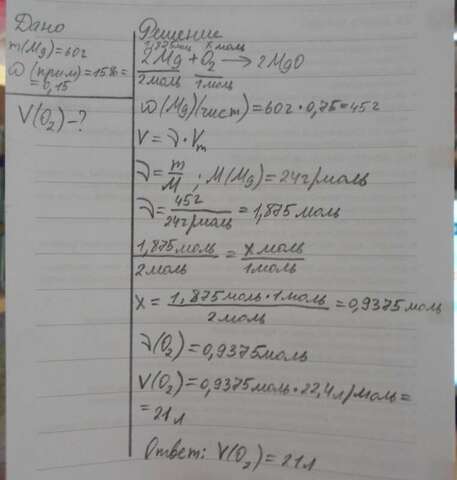 Дано
m(Mg)=60г
ω(прим)=15%=
=0,15
V(O₂)-?
Решение
1,875моль x моль
2Mg + O₂ → 2MgO
2моль 1моль
ω(Mg)(чист)=60г·0,75=45г
V=ν·Vm
ν=m/M; M(Mg)=24г/моль
ν=45г/24г/моль=1,875моль
1,875моль/2моль=x моль/1моль
x=1,875моль·1моль/2моль=0,9375моль
ν(O₂)=0,9375моль
V(O₂)=0,9375моль·22,4л/моль=
=21л
Ответ: V(O₂)=21л